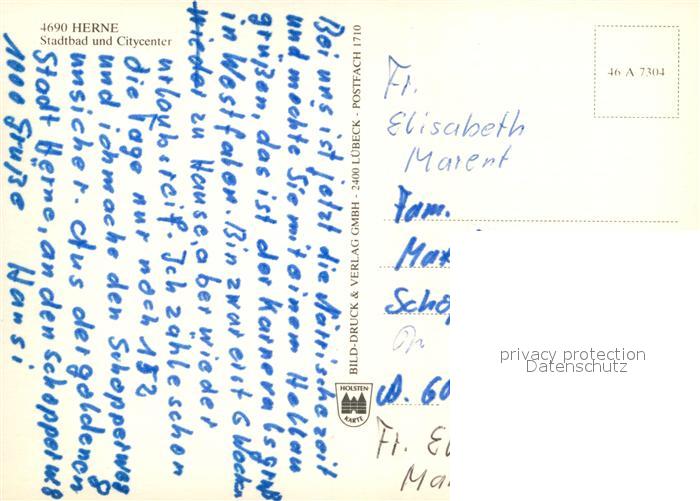 4690 HERNE
Stadtbad und Citycenter
Bei uns ist jetzt die Närrische Zeit
und möchte Sie mit einem Hellau
grüßen, das ist der Karnevalsgruß
in Westfalen. Bin zwar erst 6 Wochen
wieder zu Hause, aber wieder
urlaubsreif. Ich zähle schon
die Tage nur noch 152
und ich mache den Schopperweg
unsicher. Aus der goldenen
Stadt Herne, an den Schopperweg
1000 Grüße Hansi
BILD-DRUCK & VERLAG GMBH - 2400 LÜBECK - POSTFACH 1710
HOLSTEN-
KARTE
46 A 7304
Fr.
Elisabeth
Marent
Fam.
Max
Schop
A. 60
Fr. El
Ma
privacy protection
Datenschutz